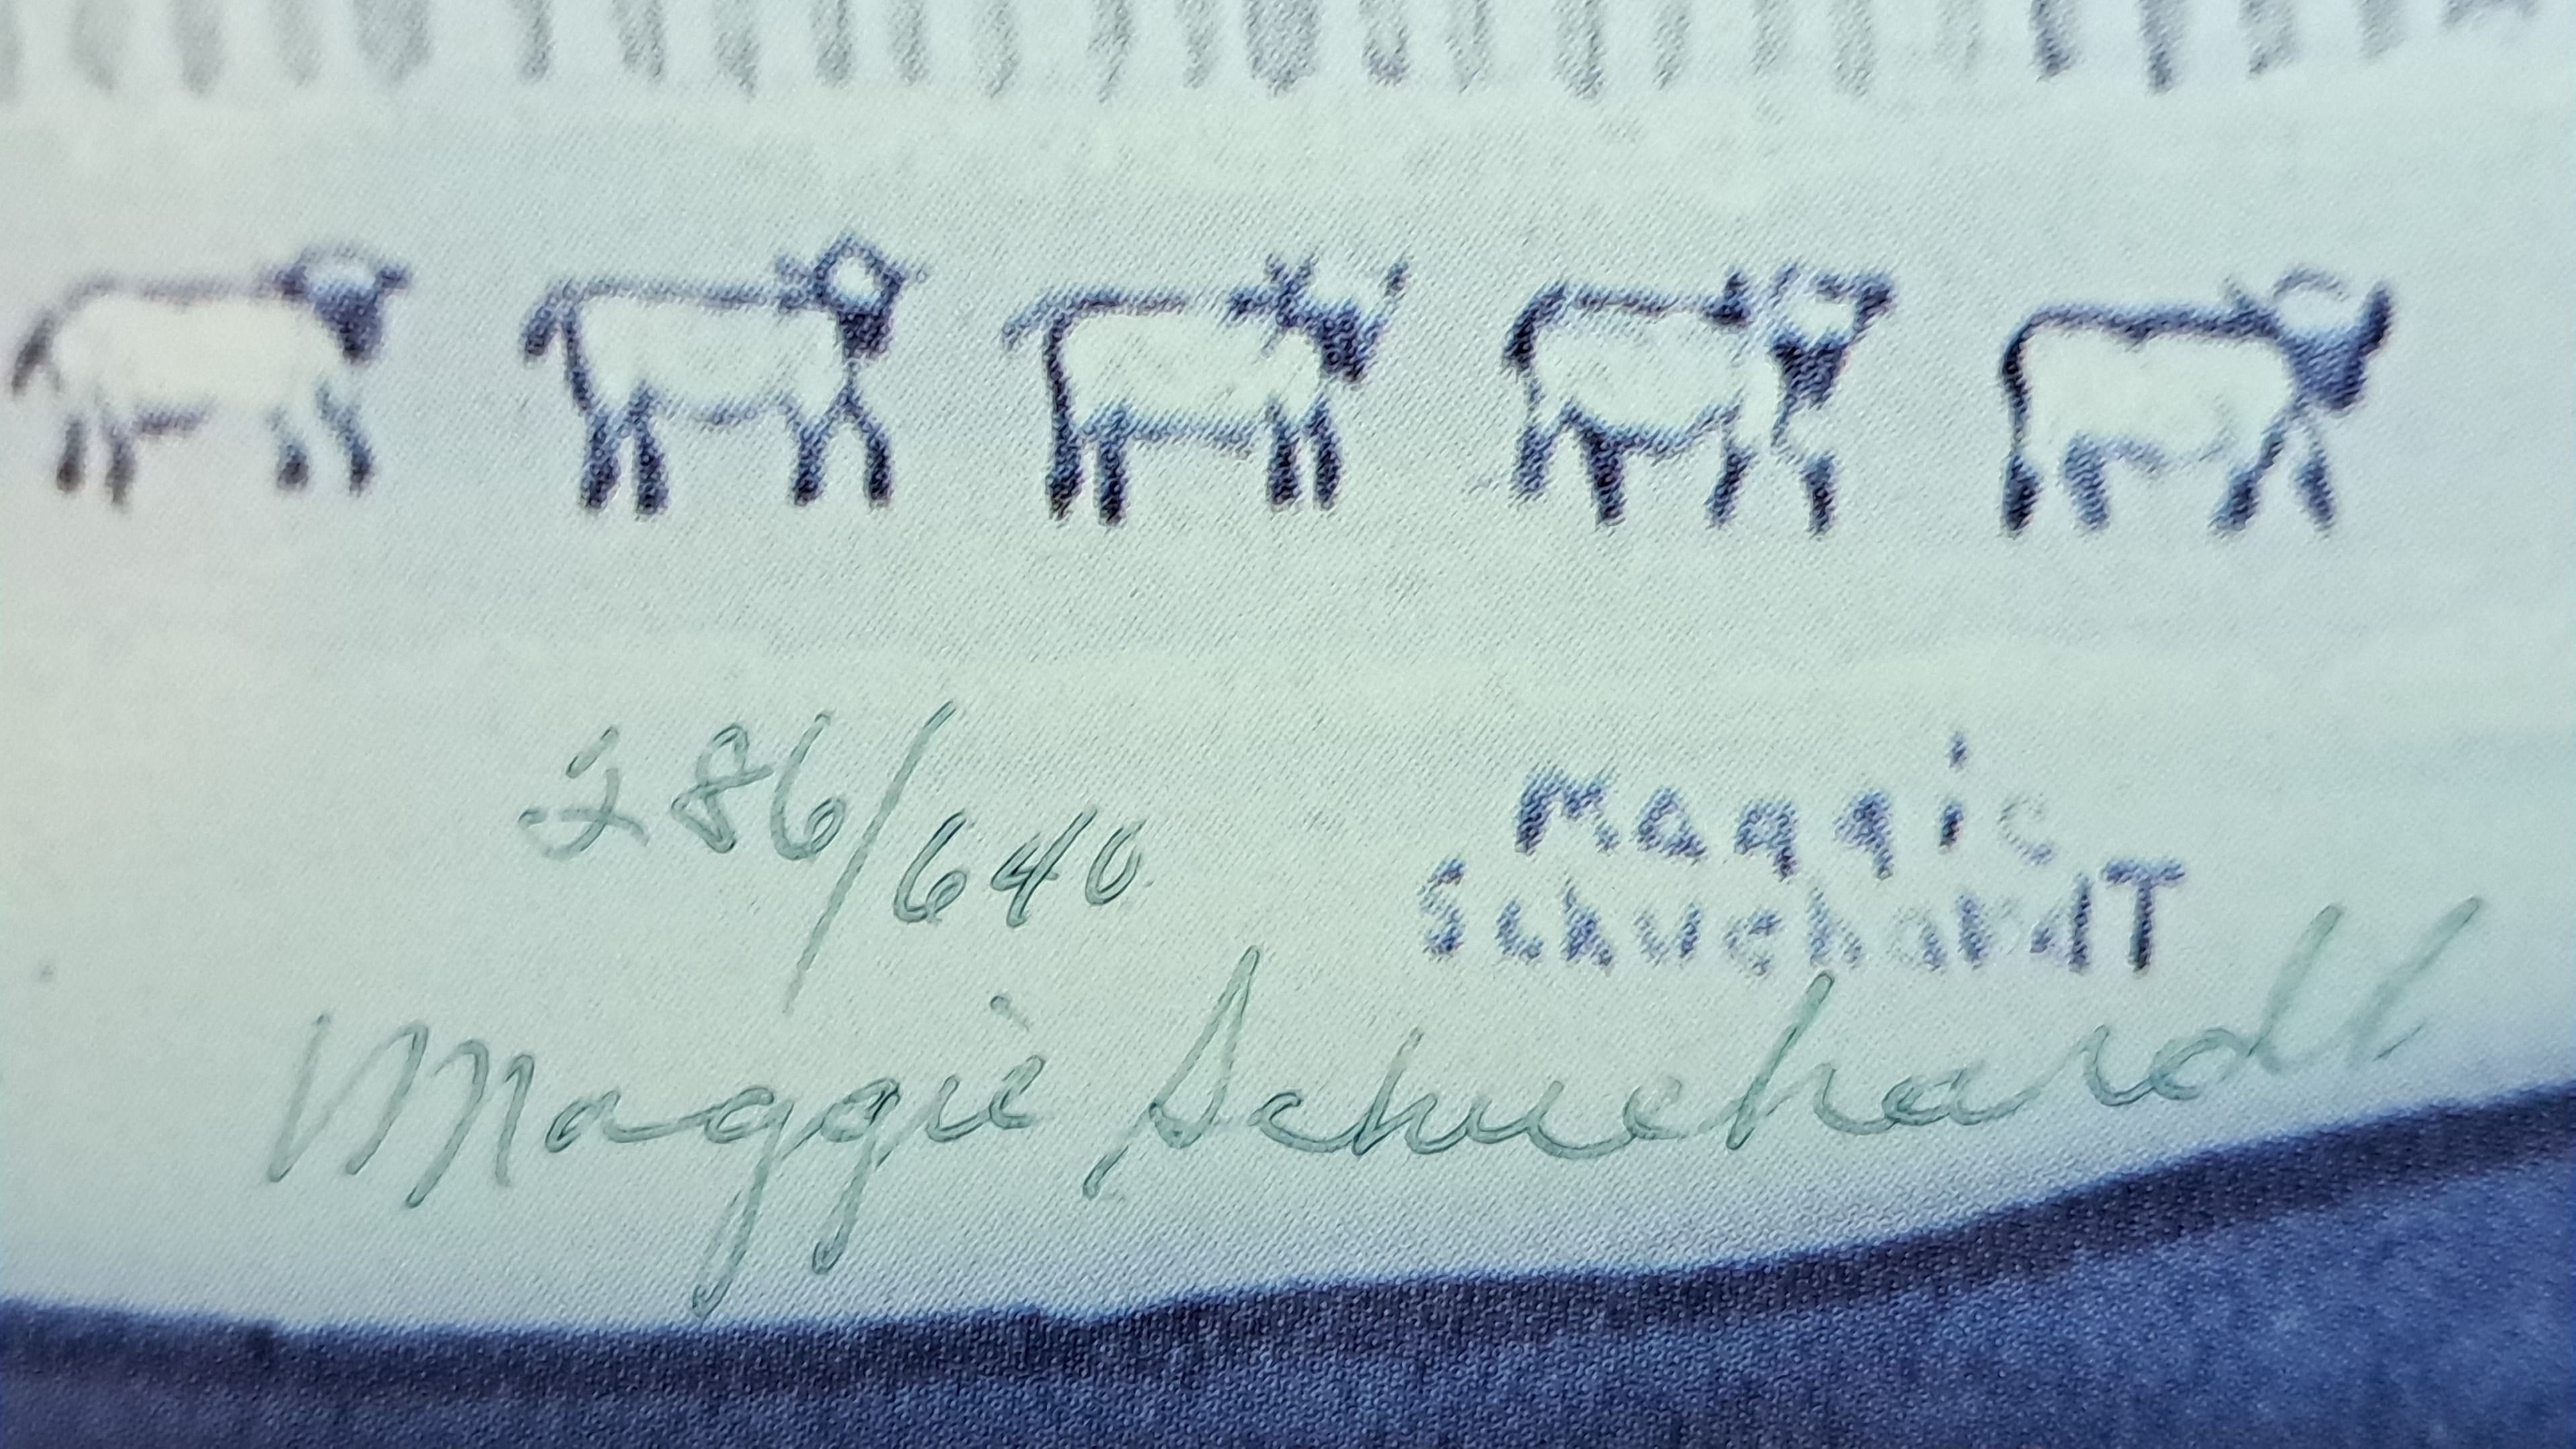 286/640
Maggie
SchuchardT
Maggie Schuchardt